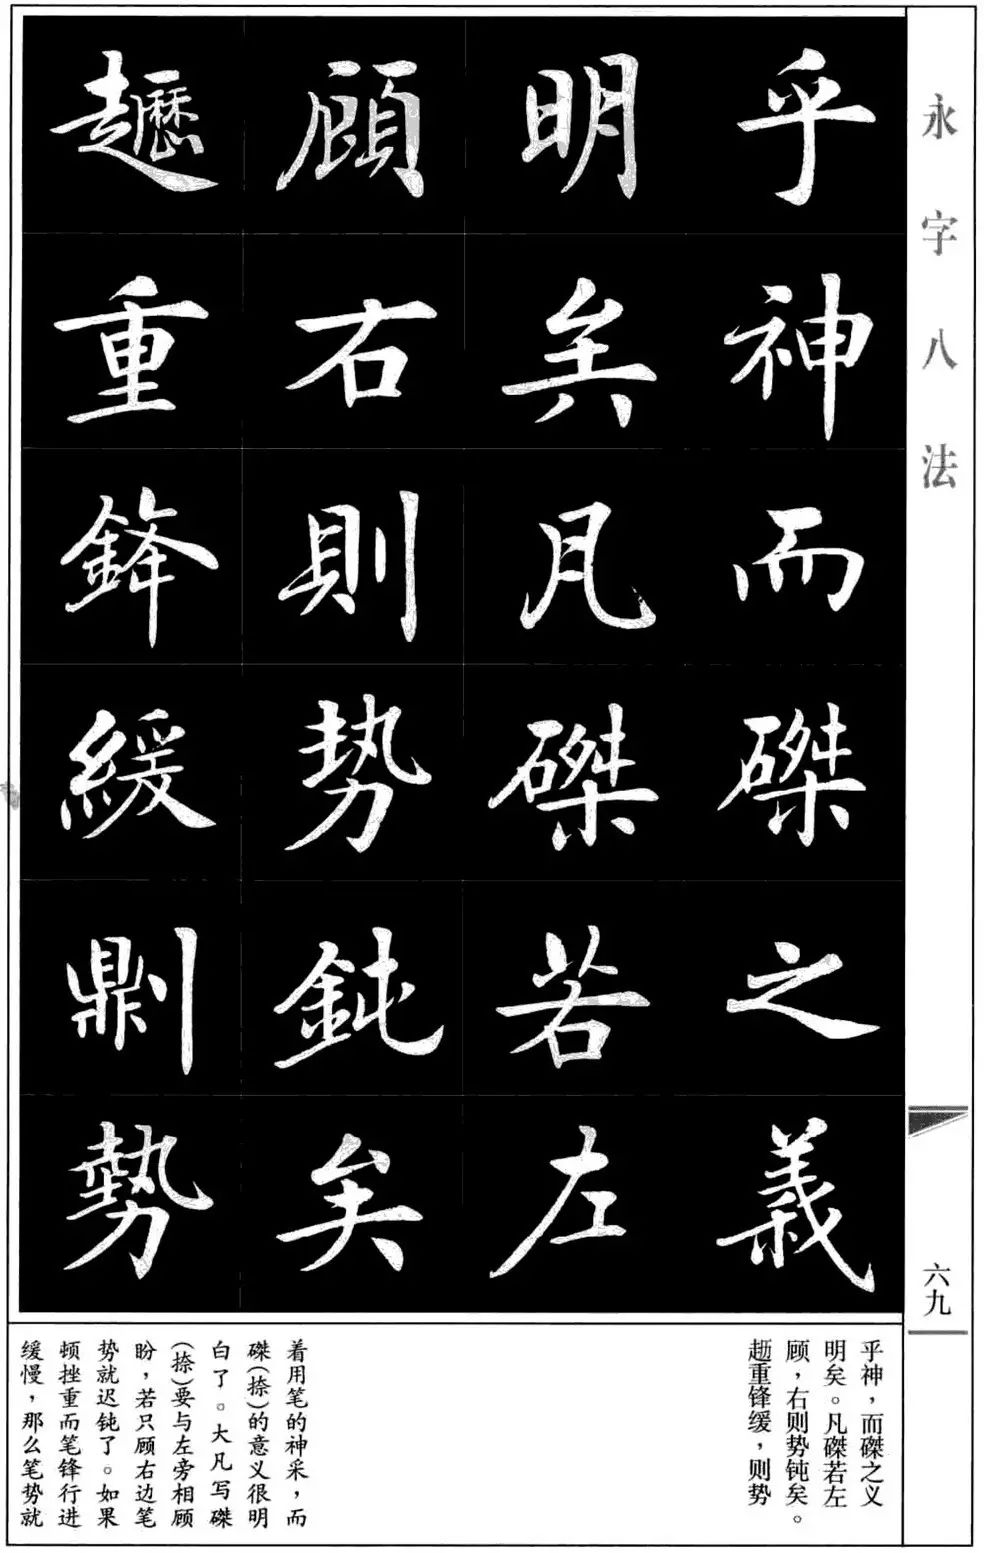 永字八法
六九
乎神而磔之義
明矣凡磔若左
顧右則势鈍矣
重鋒緩則勢
乎神，而磔之义
明矣。凡磔若左
顾，右则势钝矣。
重锋缓，则势
着用笔的神采，而
磔(捺)的意义很明
白了。大凡写磔
(捺)要与左旁相顾
盼，若只顾右边笔
势就迟钝了。如果
顿挫重而笔锋行进
缓慢，那么笔势就